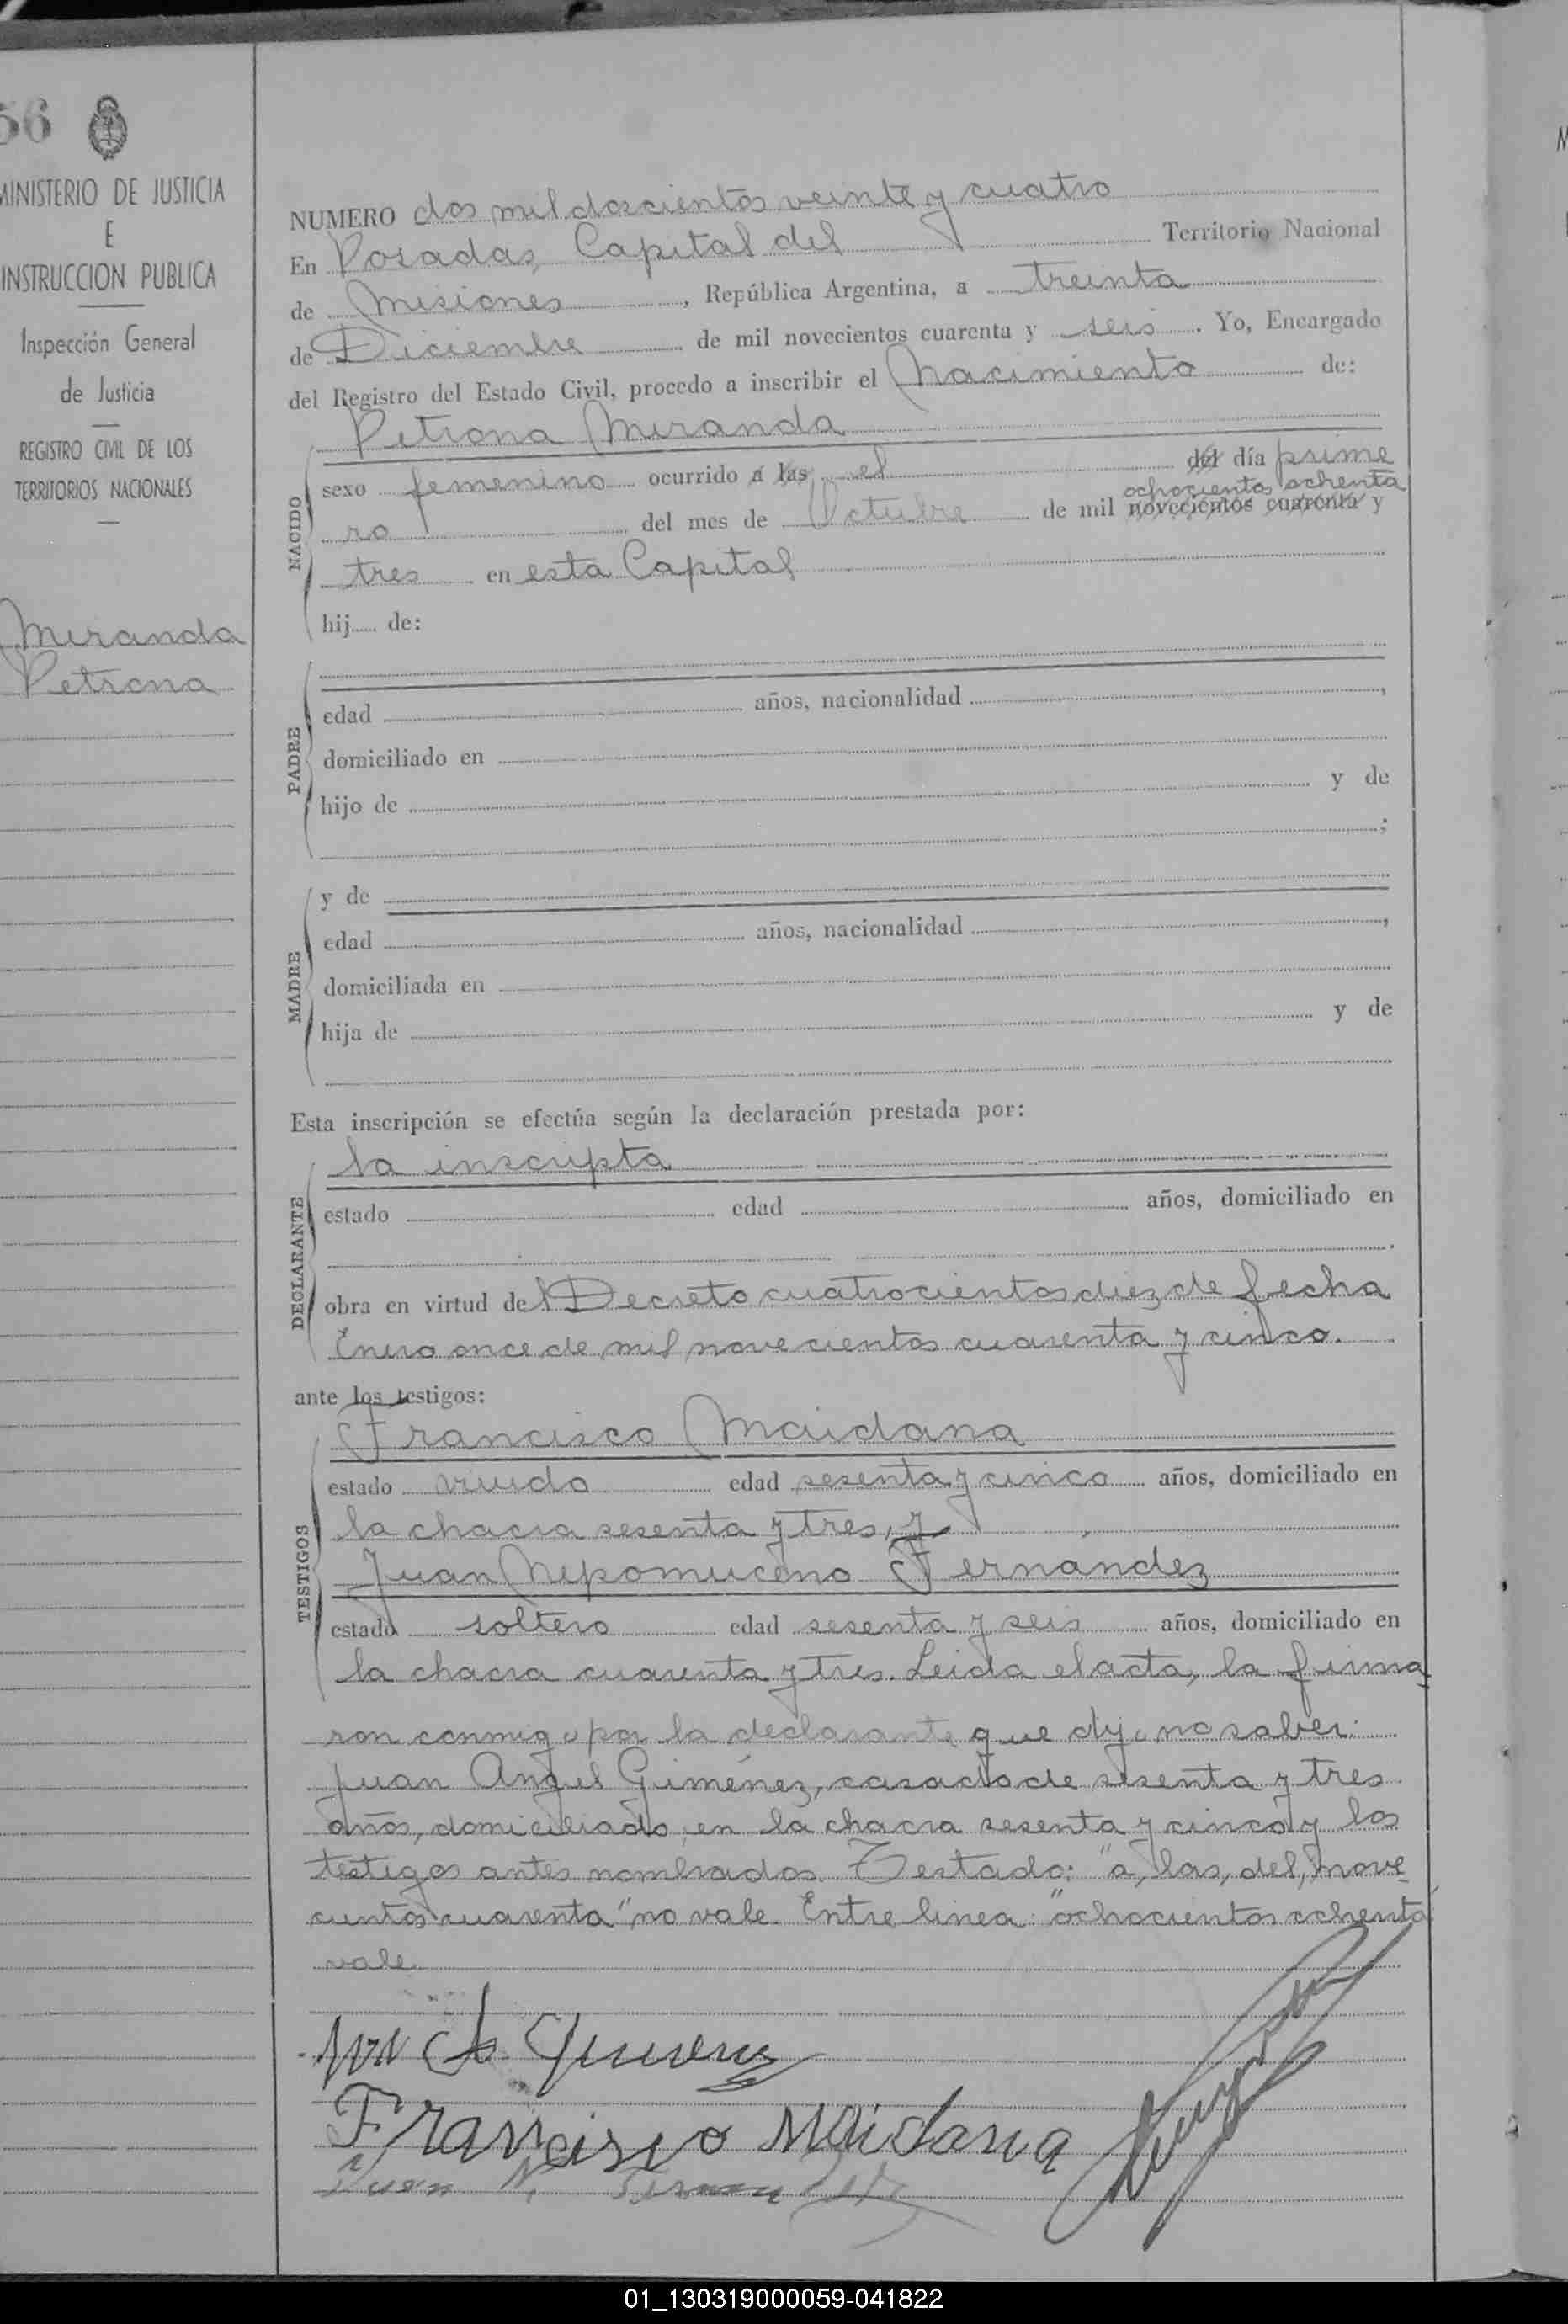 56
MINISTERIO DE JUSTICIA
E
INSTRUCCION PUBLICA
Inspección General
de Justicia
REGISTRO CIVIL DE LOS
TERRITORIOS NACIONALES
Miranda
Petrona
NUMERO dos mil doscientos veinte y cuatro
En Posadas, Capital del Territorio Nacional
de Misiones, República Argentina, a treinta
de Diciembre de mil novecientos cuarenta y seis. Yo, Encargado
del Registro del Estado Civil, procedo a inscribir el Nacimiento de:
Petrona Miranda
NACIDO
sexo femenino ocurrido a las el del día prime
ochocientos ochenta
ro del mes de Octubre de mil novecientos cuarenta y
tres en esta Capital
hij de:
PADRE
edad años, nacionalidad ,
domiciliado en
hijo de y de
;
MADRE
y de
edad años, nacionalidad ,
domiciliada en
hija de y de
Esta inscripción se efectúa según la declaración prestada por:
DECLARANTE
la inscripta
estado edad años, domiciliado en
.
obra en virtud del Decreto cuatrocientos diez de fecha
Enero once de mil novecientos cuarenta y cinco.
ante los testigos:
TESTIGOS
Francisco Maidana
estado viudo edad sesenta y cinco años, domiciliado en
la chacra sesenta y tres, y
Juan Nepomuceno Fernández
estado soltero edad sesenta y seis años, domiciliado en
la chacra cuarenta y tres. Leida el acta, la firma
ron conmigo por la declarante que dijo no saber:
Juan Angel Giménez, casado de sesenta y tres
años, domiciliado en la chacra sesenta y cinco y los
testigos antes nombrados. Testado: "a, las, del, nove
cientos cuarenta" no vale. Entre linea: "ochocientos ochenta
vale.
Francisco Maidana
Juan N.
01_130319000059-041822